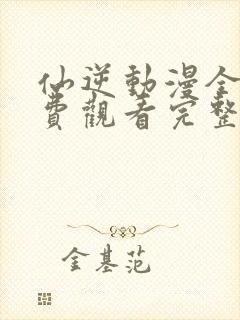 仙逆動漫全
費觀看完整
金基范